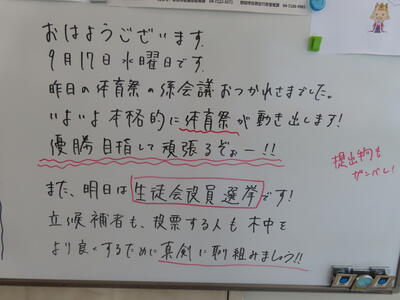 おはようございます。
9月17日水曜日です。
昨日の体育祭の係会議おつかれさまでした。
いよいよ本格的に体育祭が動き出します!
優勝目指して頑張るぞぉー!!
提出物も
ガンバレ!
また、明日は生徒会役員選挙です!
立候補者も、投票する人も木中を
より良くするために真剣に取組みましょう!!